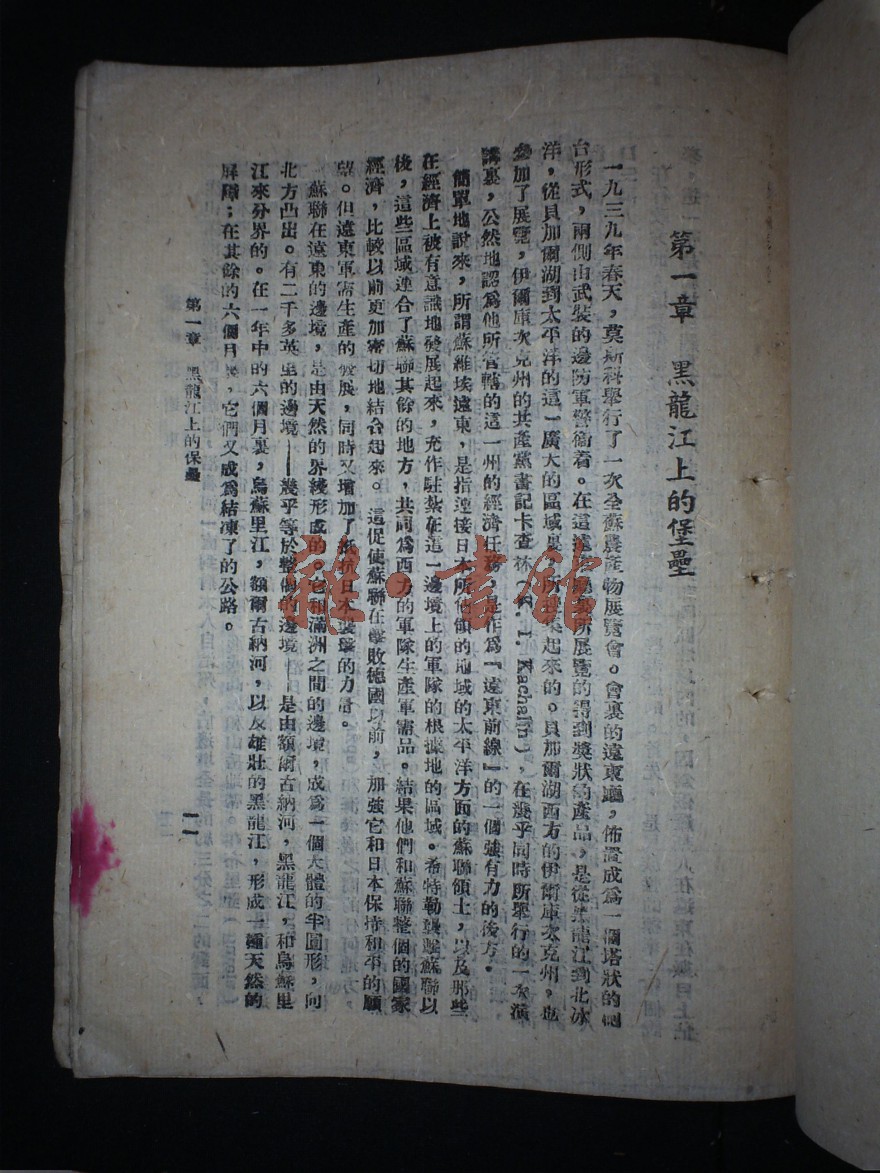 第一章 黑龍江上的堡壘
一九三九年春天，莫斯科舉行了一次全蘇農產物展覽會。會裏的遠東廳，佈置成爲一個塔狀的砲
台形式，兩側由武裝的邊防軍警衞着。在這遠東廳裏所展覽的得到獎狀的產品，是從黑龍江到北冰
洋，從貝加爾湖到太平洋的這一廣大的區域裏，所搜集起來的。貝加爾湖西方的伊爾庫次克州，也
參加了展覽，伊爾庫次克州的共產黨書記卡查林（ I. Kachalin），在幾乎同時所舉行的一次演
講裏，公然地認爲他所管轄的這一州的經濟任務，是作爲『遠東前線』的一個強有力的後方。
簡單地說來，所謂蘇維埃遠東，是指連接日本所佔領的地域的太平洋方面的蘇聯領土，以及那些
在經濟上被有意識地發展起來，充作駐紮在這一邊境上的軍隊的根據地的區域。希特勒襲擊蘇聯以
後，這些區域連合了蘇聯其餘的地方，共同爲西方的軍隊生產軍需品。結果他們和蘇聯整個的國家
經濟，比較以前更加密切地結合起來。這促使蘇聯在擊敗德國以前，加強它和日本保持和平的願
望。但遠東軍需生產的發展，同時又增加了抵抗日本襲擊的力量。
蘇聯在遠東的邊境，是由天然的界綫形成的。它和滿洲之間的邊境，成爲一個大體的半圓形，向
北方凸出。有二千多英里的邊境——幾乎等於整個的邊境——是由額爾古納河，黑龍江，和烏蘇里
江來分界的。在一年中的六個月裏，烏蘇里江，額爾古納河，以及雄壯的黑龍江，形成一種天然的
屏障；在其餘的六個月裏，它們又成爲結凍了的公路。
第一章 黑龍江上的保壘
一一
雜·書館